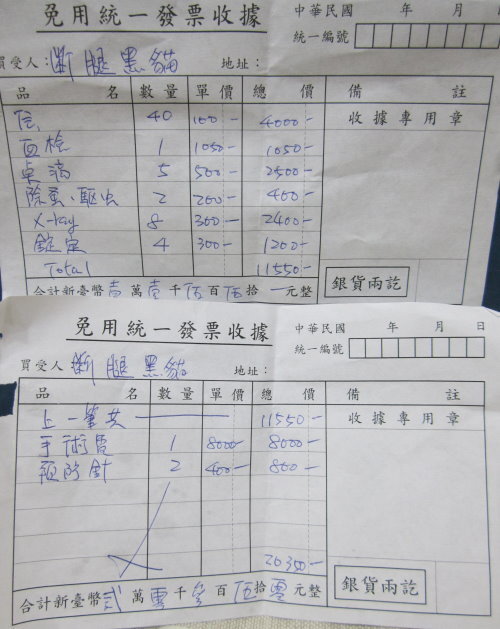 免用統一發票收據
中華民國 年 月
統一編號
買受人：斷腿黑貓 地址：
品名 數量 單價 總價 備註
住 40 100- 4000- 收據專用章
血檢 1 1050- 1050-
點滴 5 500- 2500-
除蚤、驅虫 2 200- 400-
X-ray 8 300- 2400-
鎮定 4 300- 1200-
Total 11550-
合計新臺幣壹萬壹千伍百伍拾 元整 銀貨兩訖
免用統一發票收據
中華民國 年 月 日
統一編號
買受人 斷腿黑貓 地址：
品名 數量 單價 總價 備註
上一筆共 11550- 收據專用章
手術費 1 8000- 8000-
預防針 2 400- 800-
20350-
合計新臺幣貳萬零千參百伍拾零元整 銀貨兩訖